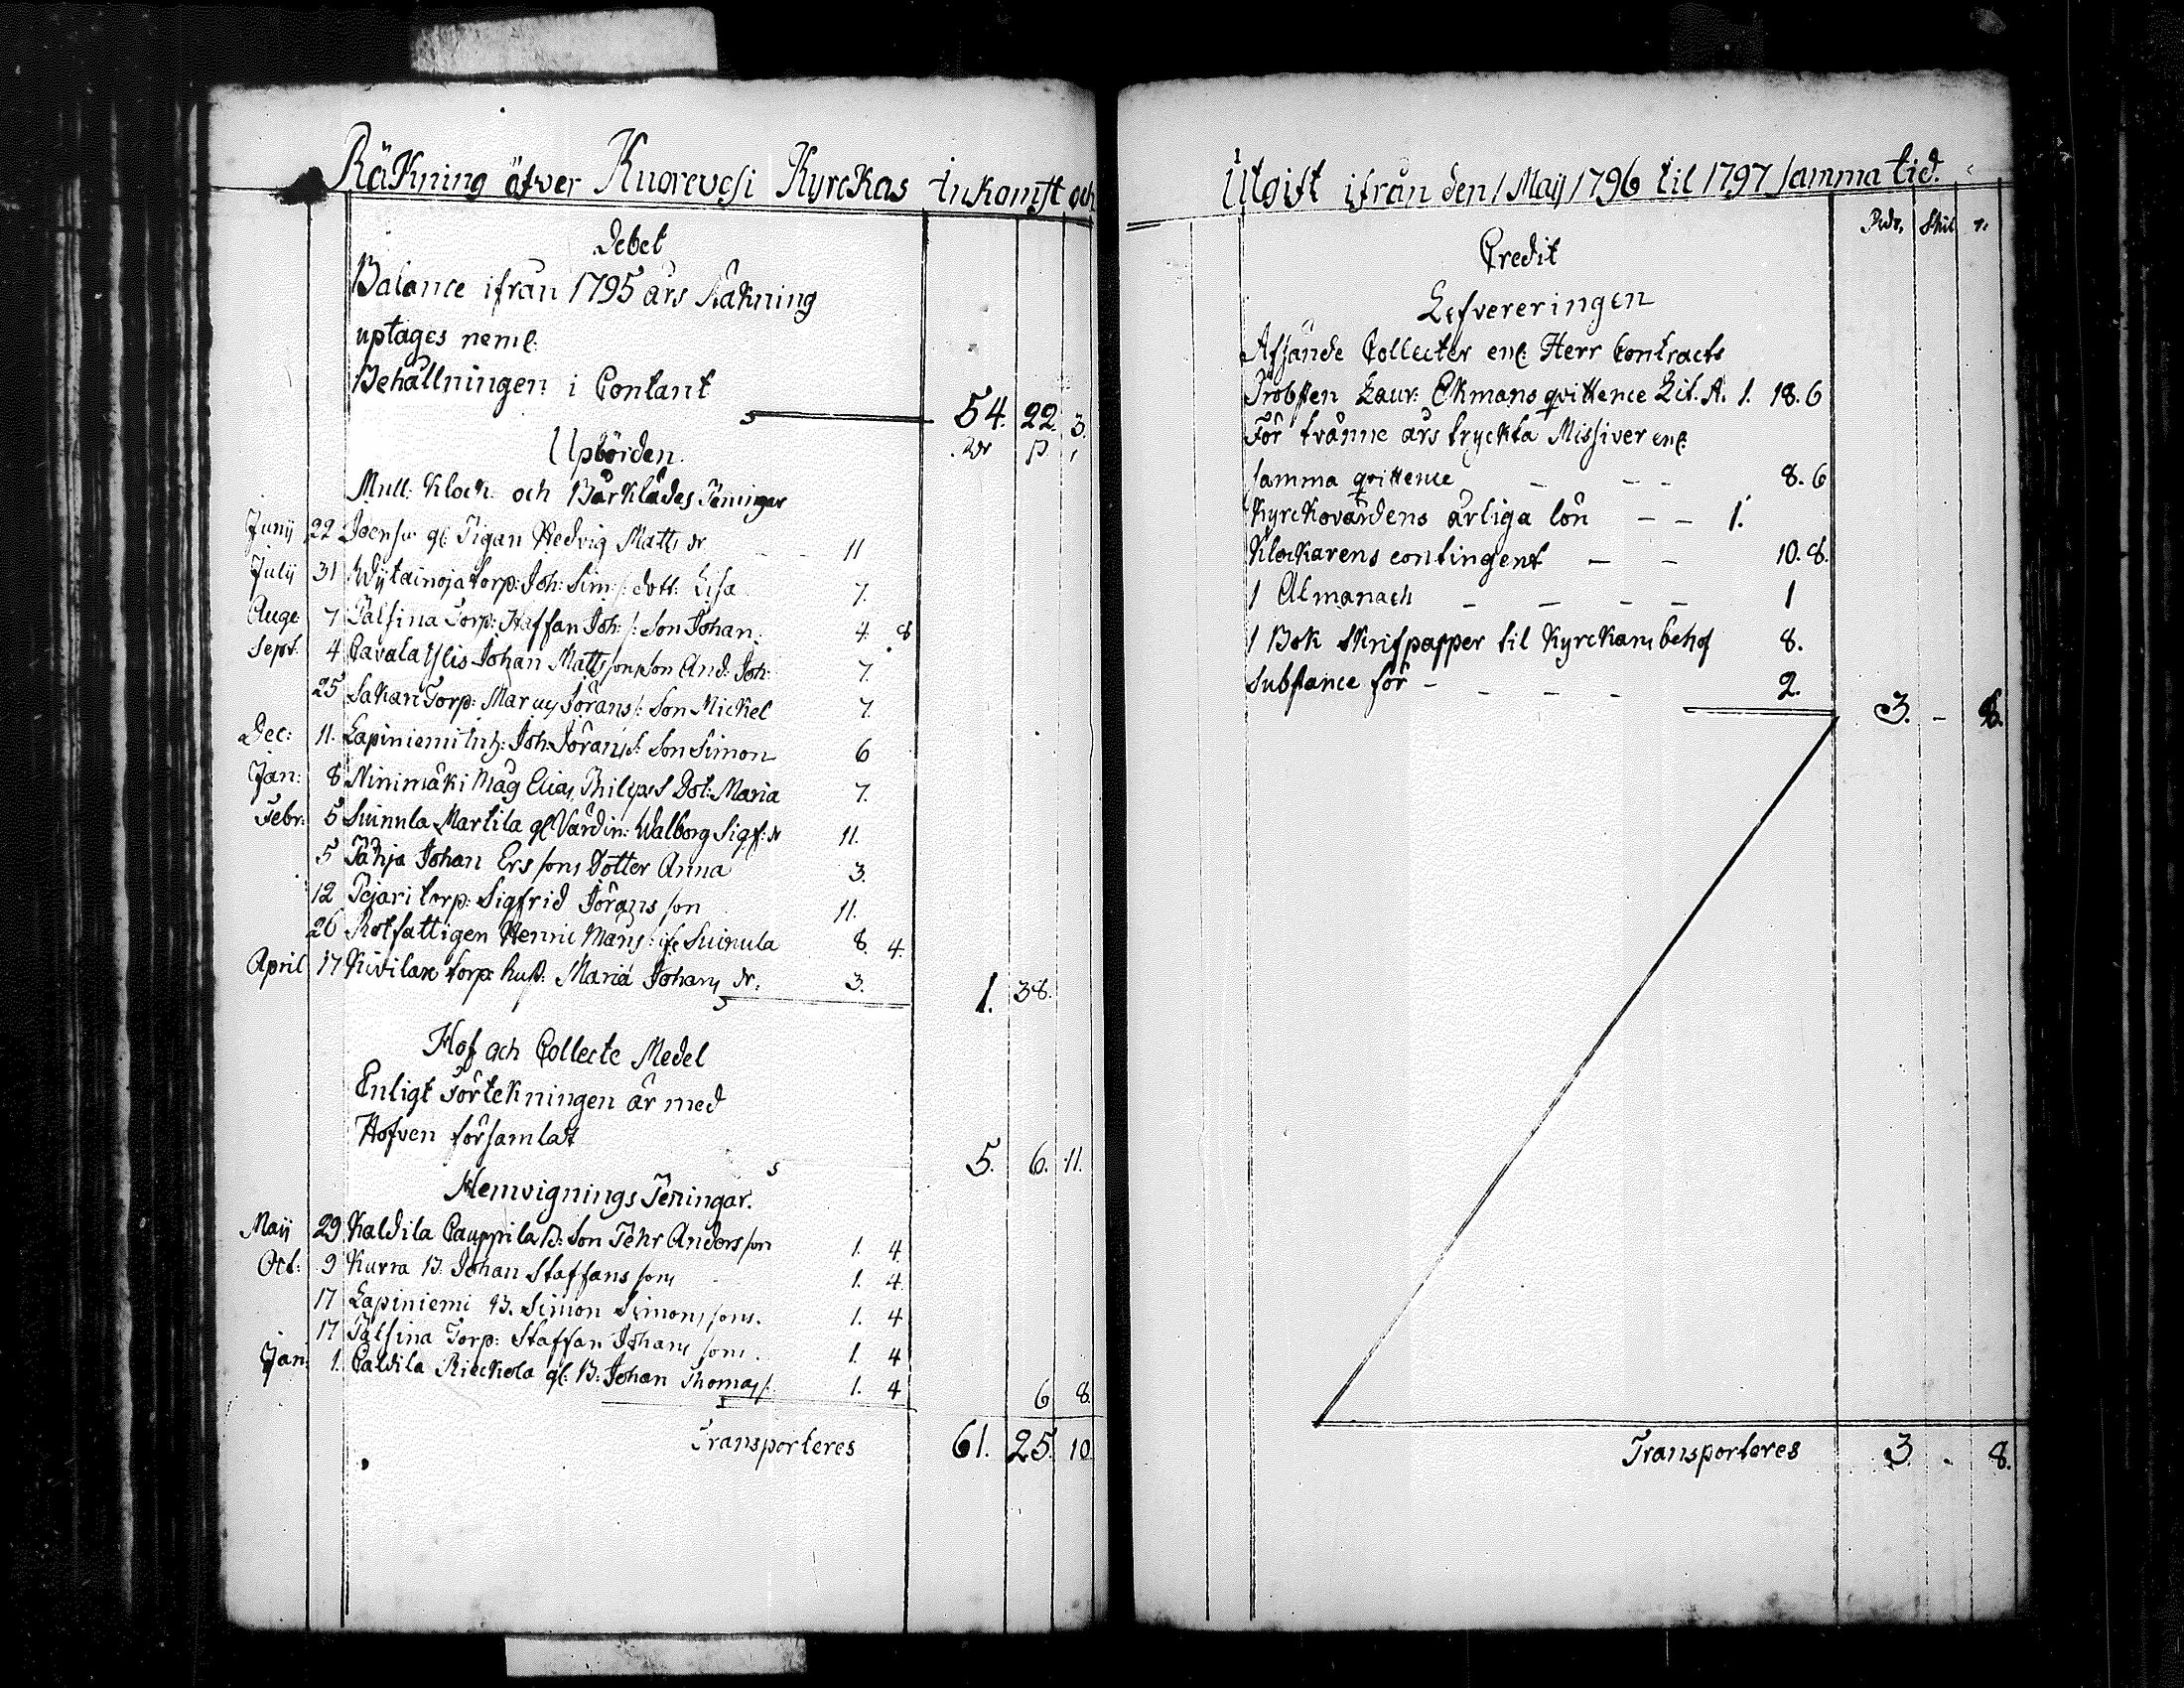 Räkning öfver Kuorevesi Kyrckas Inkomst och
Debet
Balance ifrån 1795 års Räkning
uptages neml:
Behållningen i Contant 54. 22. 3.
Upbörden.
Mull: Klock: och Bårklädes Päningar
Junij 22 gl: Pigan Hedvig Matts dr 11
Julij 31 torp: Joh: Sim:s: dott: Lisa 7.
Auge 7 Palsina Torp: Staffan Joh:s: Son Johan 4. 8
Sept. 4 Pavala Ylis Johan Mattssons Son And: Joh: 7.
25 Sakari Torp: Marcus Jörans: Son Mickel 7.
Dec: 11. Lapiniemi Inh: Joh: Jörans: Son Simon 6
Jan: 8 Ninimäki Måg Elias Philips: Dot: Maria 7.
Febr: 5 Suinula Martila gl. Värdin: Walborg Sigf: dr 11.
5 Pähja Johan Ersons Dotter Anna 3.
12 Pejari torp: Sigfrid Jöransson 11.
26 Rotfattigen Henric Måns: ifr Suinula 8 4.
April 17 Kivilax torp: hust: Maria Johans dr. 3.
1. 38.
Hof och Collecte Medel
Enligt Förtekningen är med
Hofven församlat 5. 6. 11.
Hemvignings Peningar.
Maij 29 Kaldila Pauppila B: Son Pehr Andersson 1. 4.
Oct: 9 Kurra B. Johan Staffanssons 1. 4.
17 Lapiniemi B. Simon Simonssons. 1. 4
17 Palsina Torp: Staffan Johanssons. 1. 4
Jan: 1. Paldila Rieckola gl: B: Johan Thomas: 1. 4
6 8.
Transporteres 61. 25. 10.
Utgift ifrån den 1 Maij 1796 til 1797 samma tid.
Rdr. Skil r.
Credit
Lefvereringen
Afsände Collecter enl: Herr Contracts
Probsten Laur: Ekmans qvittence Lit. A. 1. 18. 6
För tvänne års tryckta Missiver enl:
samma qvittence - - - 8. 6
Kyrckovärdens årliga lön - - 1.
Klockarens contingent - - 10. 8.
1 Almanach - - - - 1
1 Bok skrifpapper til Kyrckans behof 8.
Substance för - - - - 2.
3. - 8.
Transporteres 3. - 8.